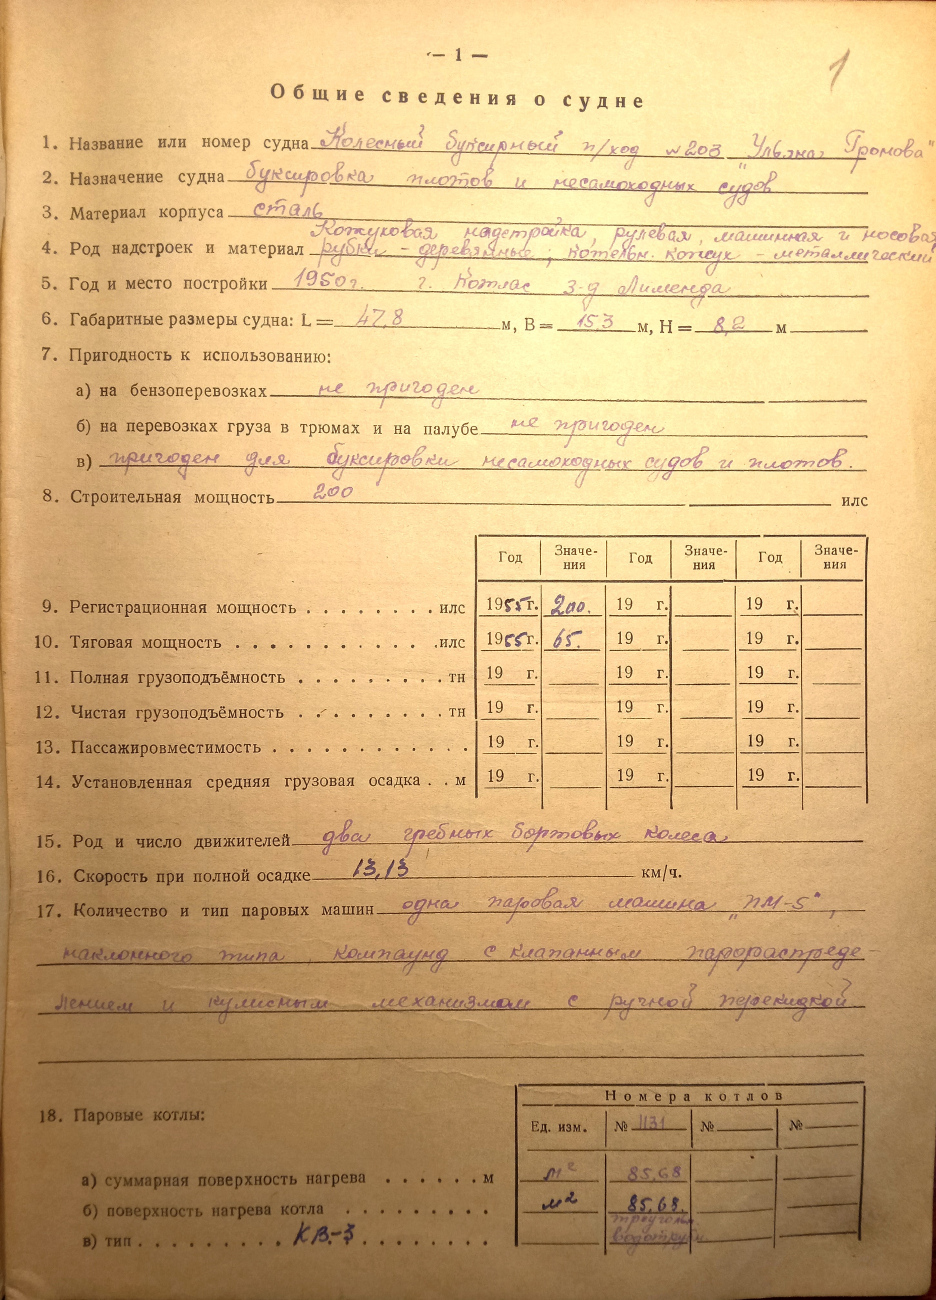 — 1 —
1
Общие сведения о судне
1. Название или номер судна Колесный буксирный п/ход №203 „Ульяна Громова"
2. Назначение судна буксировка плотов и несамоходных судов
3. Материал корпуса сталь
Кожуховая надстройка, рулевая, машинная и носовая
4. Род надстроек и материал рубки – деревянные; котельн. кожух – металлический
5. Год и место постройки 1950г. г. Котлас з-д Лименда
6. Габаритные размеры судна: L = 47,8 м, B = 15,3 м, H = 8,2 м
7. Пригодность к использованию:
а) на бензоперевозках не пригоден
б) на перевозках груза в трюмах и на палубе не пригоден
в) пригоден для буксировки несамоходных судов и плотов.
8. Строительная мощность 200 илс
Год Значе- Год Значе- Год Значе-
ния ния ния
9. Регистрационная мощность . . . . . . . . илс 1955г. 200. 19 г. 19 г.
10. Тяговая мощность . . . . . . . . . . . .илс 1955г. 65. 19 г. 19 г.
11. Полная грузоподъёмность . . . . . . . . . тн 19 г. 19 г. 19 г.
12. Чистая грузоподъёмность . . . . . . . . . тн 19 г. 19 г. 19 г.
13. Пассажировместимость . . . . . . . . . . . . 19 г. 19 г. 19 г.
14. Установленная средняя грузовая осадка . . м 19 г. 19 г. 19 г.
15. Род и число движителей два гребных бортовых колеса
16. Скорость при полной осадке 13,13 км/ч.
17. Количество и тип паровых машин одна паровая машина „ПМ-5",
наклонного типа, компаунд с клапанным парораспреде-
лением и кулисным механизмом с ручной перекидкой
Номера котлов
18. Паровые котлы: Ед. изм. № 1131 № №
а) суммарная поверхность нагрева . . . . . . м м2 85,68
б) поверхность нагрева котла . . . . . . . . . м2 85,68.
треугольн.
в) тип . . . . . . . . . КВ-3 . . . . . . . . водотрубн.